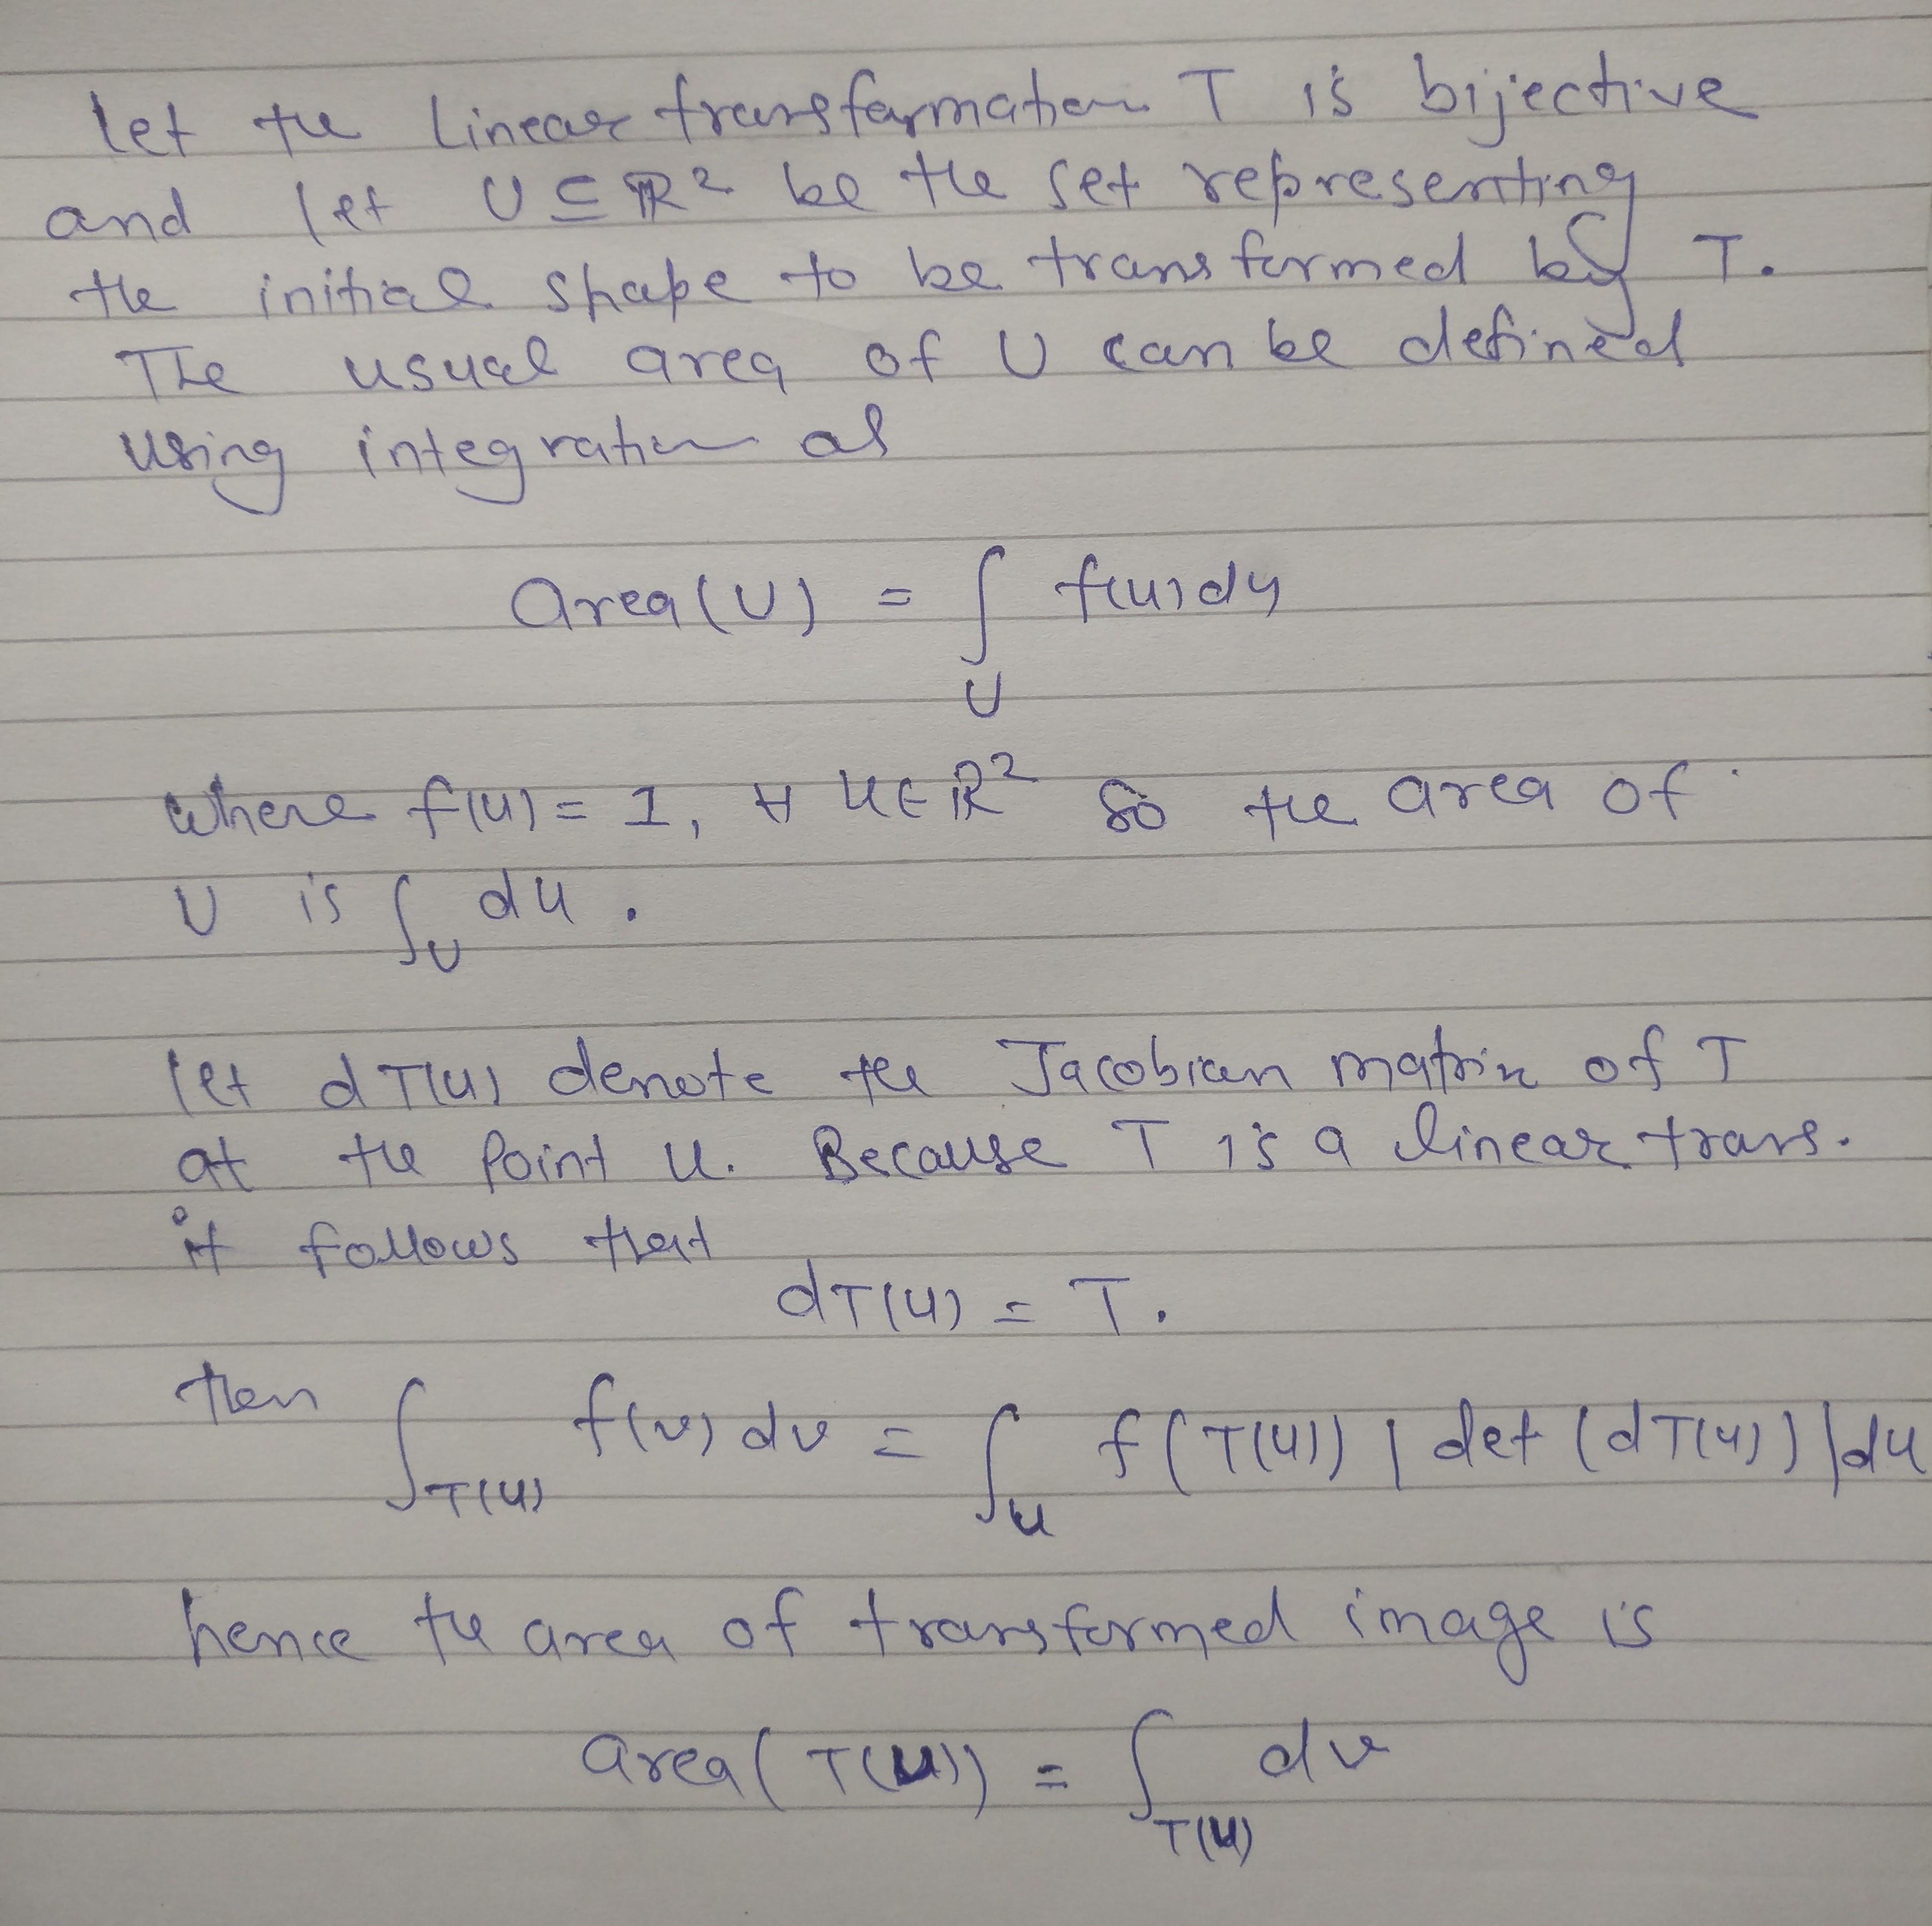 let the linear transformation T is bijective
and let U ⊆ ℝ² be the set representing
the initial shape to be transformed by T.
The usual area of U can be defined
using integration as
area(U) = ∫_U f(u)du
where f(u) = 1, ∀ u∈ℝ² so the area of
U is ∫_U du.
let dT(u) denote the Jacobian matrix of T
at the point u. Because T is a linear trans.
it follows that
dT(u) = T.
then ∫_T(U) f(v)dv = ∫_U f(T(u)) |det(dT(u))|du
hence the area of transformed image is
area(T(U)) = ∫_T(U) dv